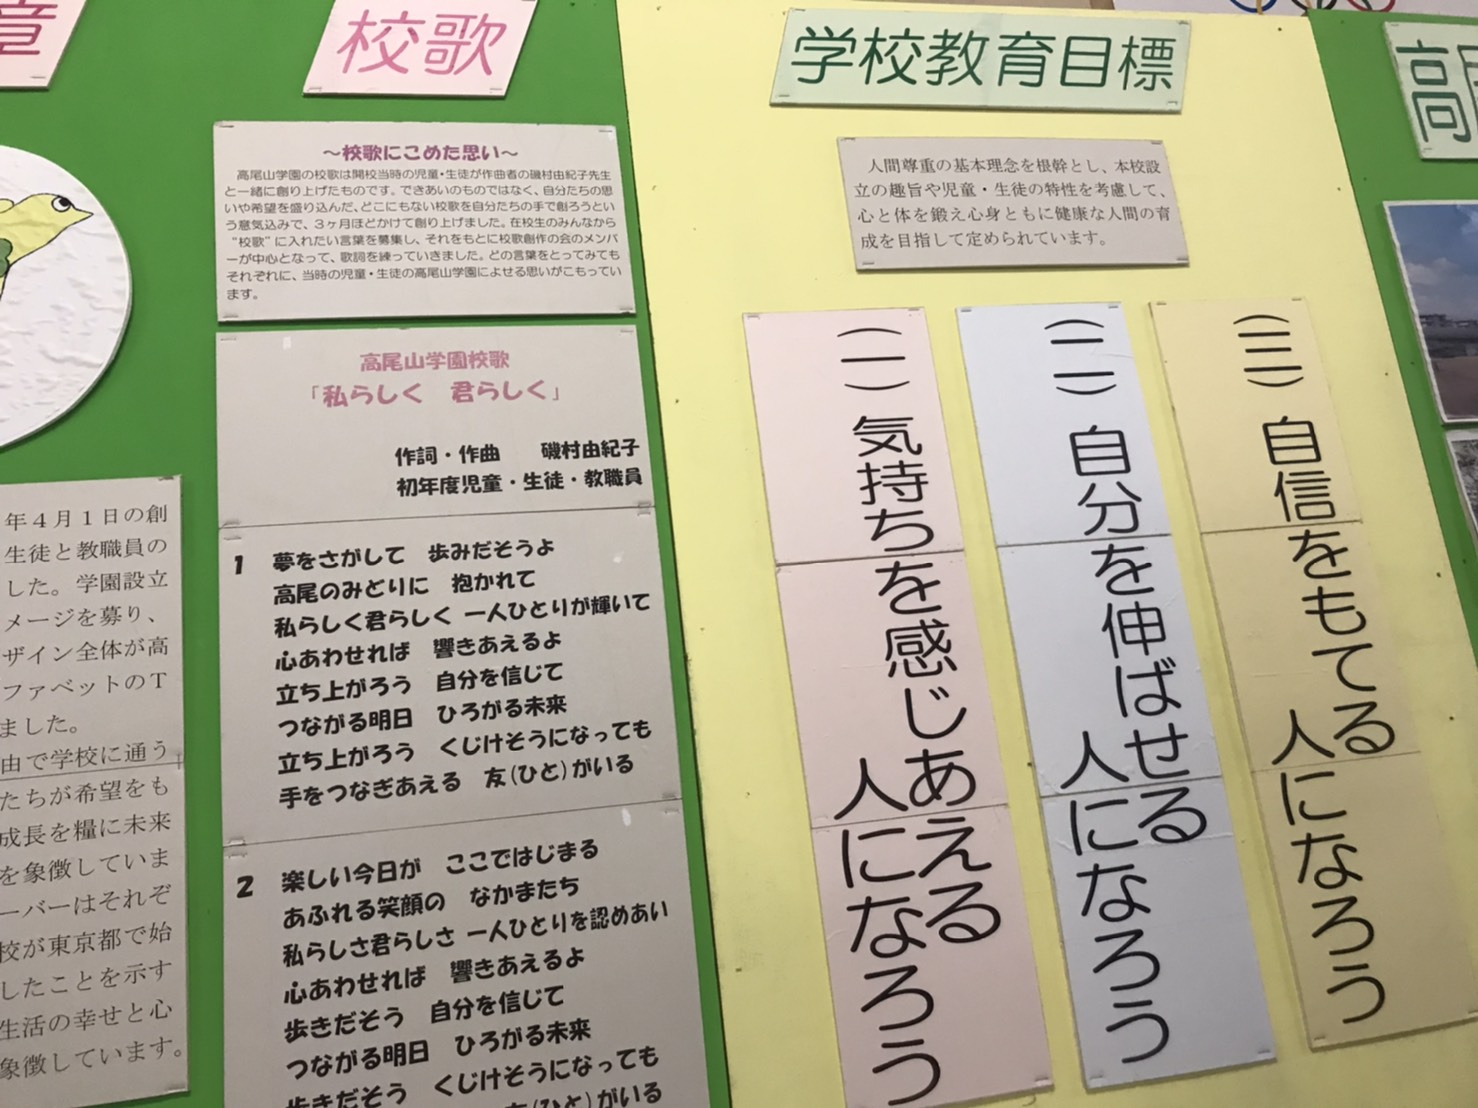 章
年４月１日の創
生徒と教職員の
した。学園設立
メージを募り、
ザイン全体が高
ファベットのＴ
ました。
由で学校に通う
たちが希望をも
成長を糧に未来
を象徴していま
ーバーはそれぞ
校が東京都で始
したことを示す
生活の幸せと心
象徴しています。
校歌
～校歌にこめた思い～
高尾山学園の校歌は開校当時の児童・生徒が作曲者の磯村由紀子先生
と一緒に創り上げたものです。できあいのものではなく、自分たちの思
いや希望を盛り込んだ、どこにもない校歌を自分たちの手で創ろうとい
う意気込みで、３ヶ月ほどかけて創り上げました。在校生のみんなから
“校歌”に入れたい言葉を募集し、それをもとに校歌創作の会のメンバ
ーが中心となって、歌詞を練っていきました。どの言葉をとってみても
それぞれに、当時の児童・生徒の高尾山学園によせる思いがこもってい
ます。
高尾山学園校歌
「私らしく　君らしく」
作詞・作曲　磯村由紀子
初年度児童・生徒・教職員
1　夢をさがして　歩みだそうよ
高尾のみとりに　抱かれて
私らしく君らしく 一人ひとりが輝いて
心あわせれば　響きあえるよ
立ち上がろう　自分を信じて
つながる明日　ひろがる未来
立ち上がろう　くじけそうになっても
手をつなぎあえる　友（ひと）がいる
2　楽しい今日が　ここではじまる
あふれる笑顔の　なかまたち
私らしさ君らしさ 一人ひとりを認めあい
心あわせれば　響きあえるよ
歩きだそう　自分を信じて
つながる明日　ひろがる未来
歩きだそう　くじけそうになっても
友（ひと）がいる
学校教育目標
人間尊重の基本理念を根幹とし、本校設
立の趣旨や児童・生徒の特性を考慮して、
心と体を鍛え心身ともに健康な人間の育
成を目指して定められています。
（一）気持ちを感じあえる
人になろう
（二）自分を伸ばせる
人になろう
（三）自信をもてる
人になろう
高